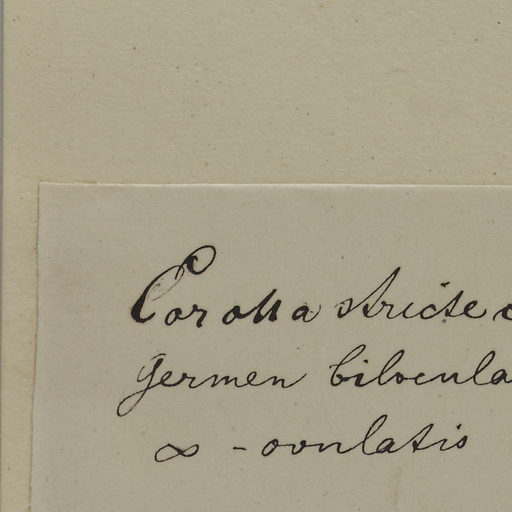 Corolla stricte c
germen bilocula
∞ - ovulatis